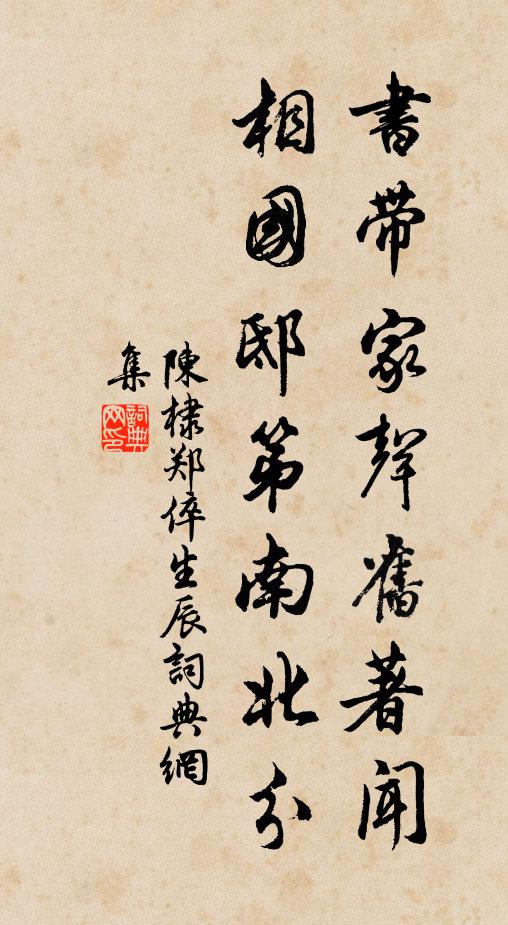 書帶家聲舊著聞
相國邸第南北分
陳棣郑倅生辰詞典網
集
詞典
网印